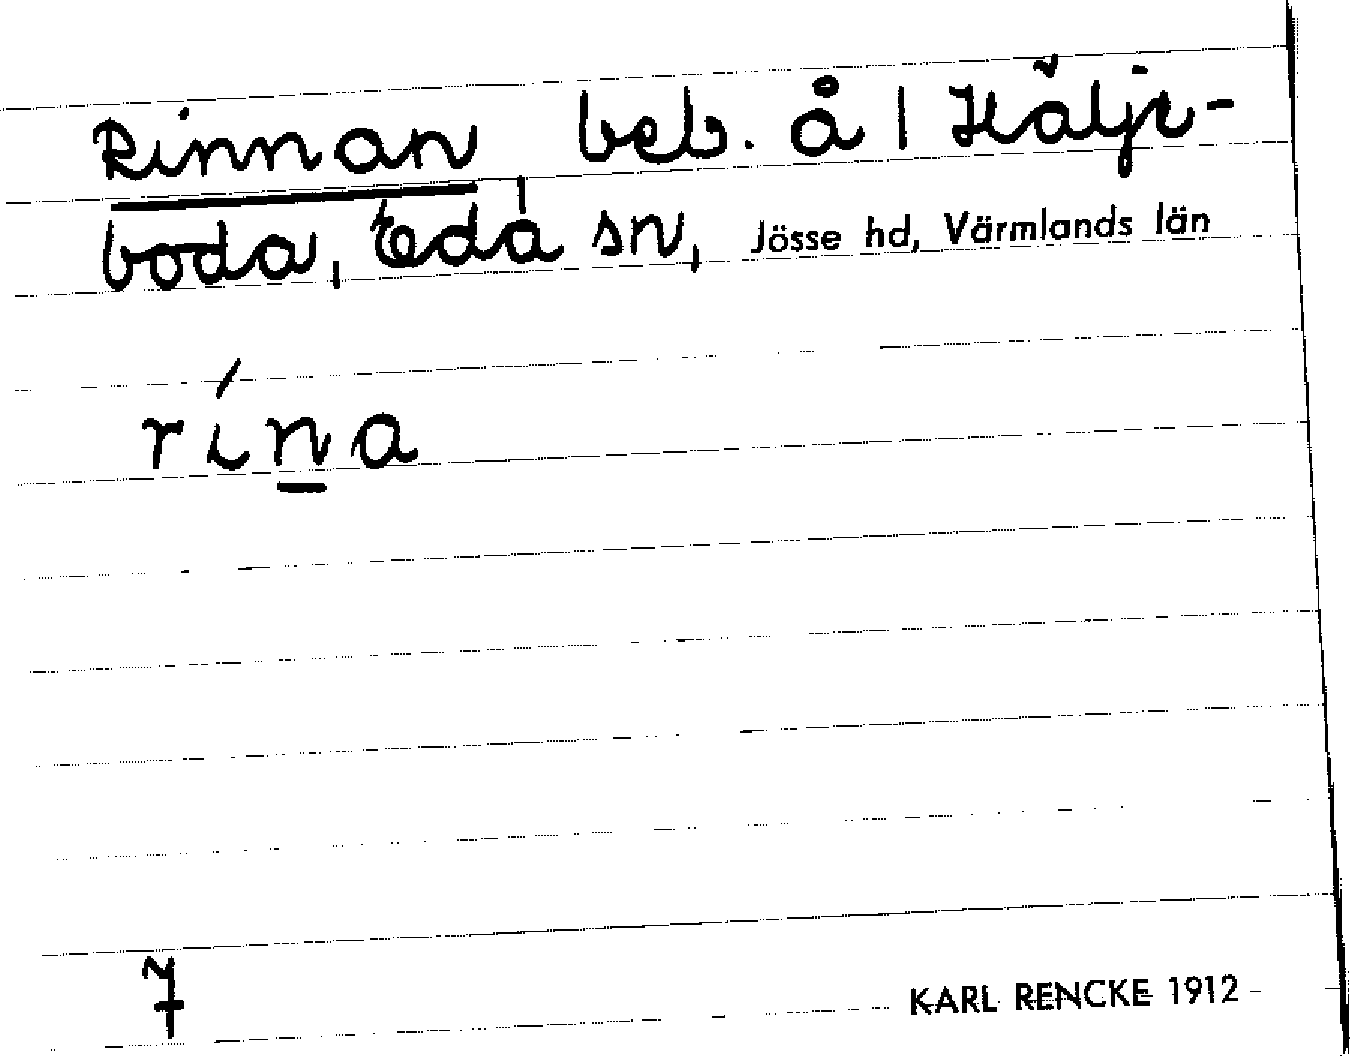 Rinnan, beb. å | Häljе-
boda, Eda sn, Jösse hd, Värmlands län
rína
7
KARL RENCKE 1912